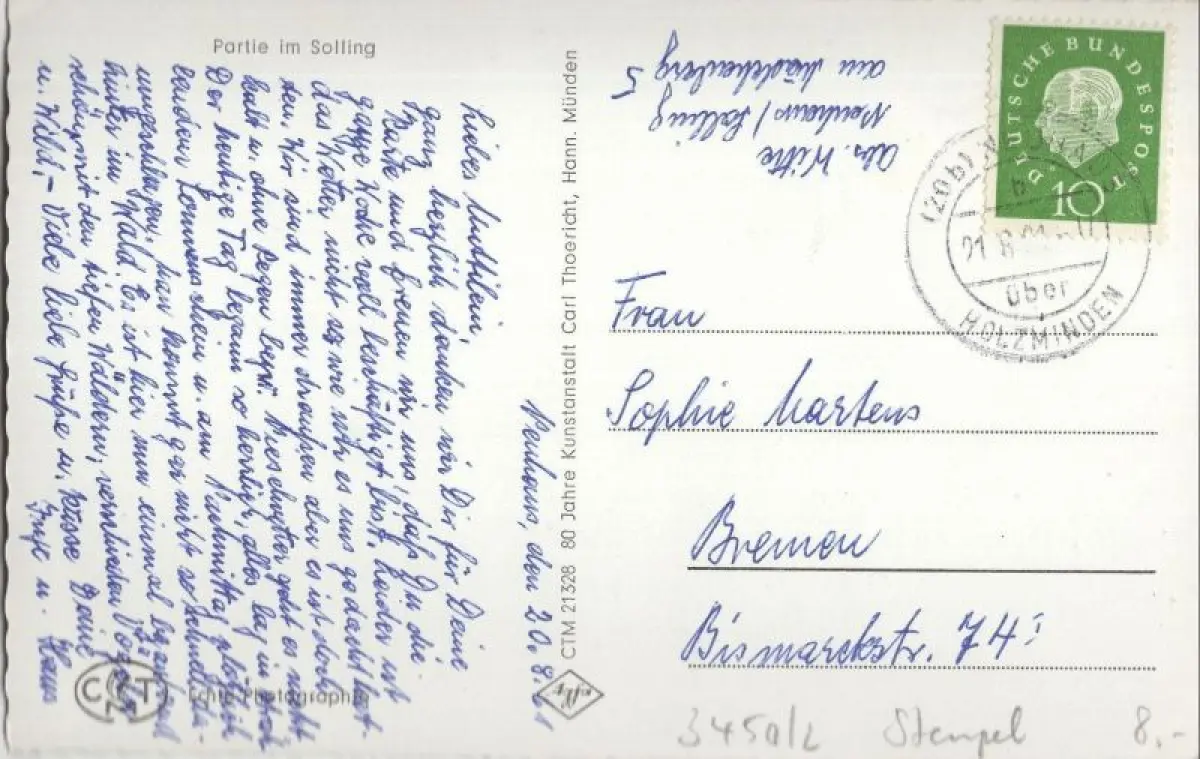 Partie im Solling
Neuhaus, den 20.8.61
ganz herzlich danken wir Dir für Deine
Karte und freuen wir uns, daß Du die
ganze Woche voll beschäftigt bist. Leider ist
das Wetter nicht so wie wir es uns gedacht hat-
ten. Wir sind immer draußen aber es ist doch
kalt u. ohne Regen geht es nicht
Der heutige Tag begann so herrlich, alles lag im
Sonnenschein u. am Nachmittag plötzlich
umgeschlagen, man kommt gar nicht so
hinter im Wald. Es ist hier nun einmal
schön, mit den tiefen Wäldern, verschiedenen
u. Wild, – Viele liebe Grüße u. Küsse Deine
u. Hans
Echte Photographie
CTM 21328 80 Jahre Kunstanstalt Carl Thoericht, Hann. Münden
Abs. Witte
Neuhaus / Solling
am 5
DEUTSCHE BUNDESPOST
10
(20b)
21. 8.
über
HOLZMINDEN
Frau
Sophie Martens
Bremen
Bismarckstr. 74
3450/2 Stempel 8.-